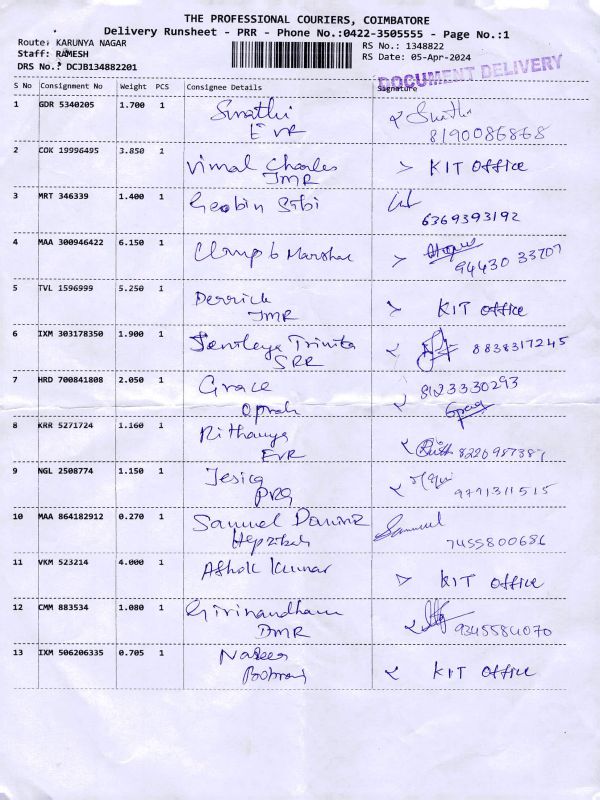 THE PROFESSIONAL COURIERS, COIMBATORE
Delivery Runsheet - PRR - Phone No.:0422-3505555 - Page No.:1
Route: KARUNYA NAGAR RS No.: 1348822
Staff: RAMESH RS Date: 05-Apr-2024
DRS No.: DCJB134882201 DOCUMENT DELIVERY
S No Consignment No Weight PCS Consignee Details Signature
1 GDR 5340205 1.700 1 Swathi
EVR 8190086868
2 COK 19996495 3.850 1 Vimal Charles KIT Office
JMR
3 MRT 346339 1.400 1 Geobin Sibi
6369393192
4 MAA 300946422 6.150 1
94430 33707
5 TVL 1596999 5.250 1 Derrick KIT Office
JMR
6 IXM 303178350 1.900 1 Trinita 8838317245
SRR
7 HRD 700841808 2.050 1 Grace 8123330293
Oprah
8 KRR 5271724 1.160 1 Rithanya
EVR
9 NGL 2508774 1.150 1 Jesica
PRG 9791311515
10 MAA 864182912 0.270 1 Samuel Samuel
7455800686
11 VKM 523214 4.000 1 Ashok Kumar KIT Office
12 CMM 883534 1.080 1
DMR 9345584070
13 IXM 506206335 0.705 1 KIT Office